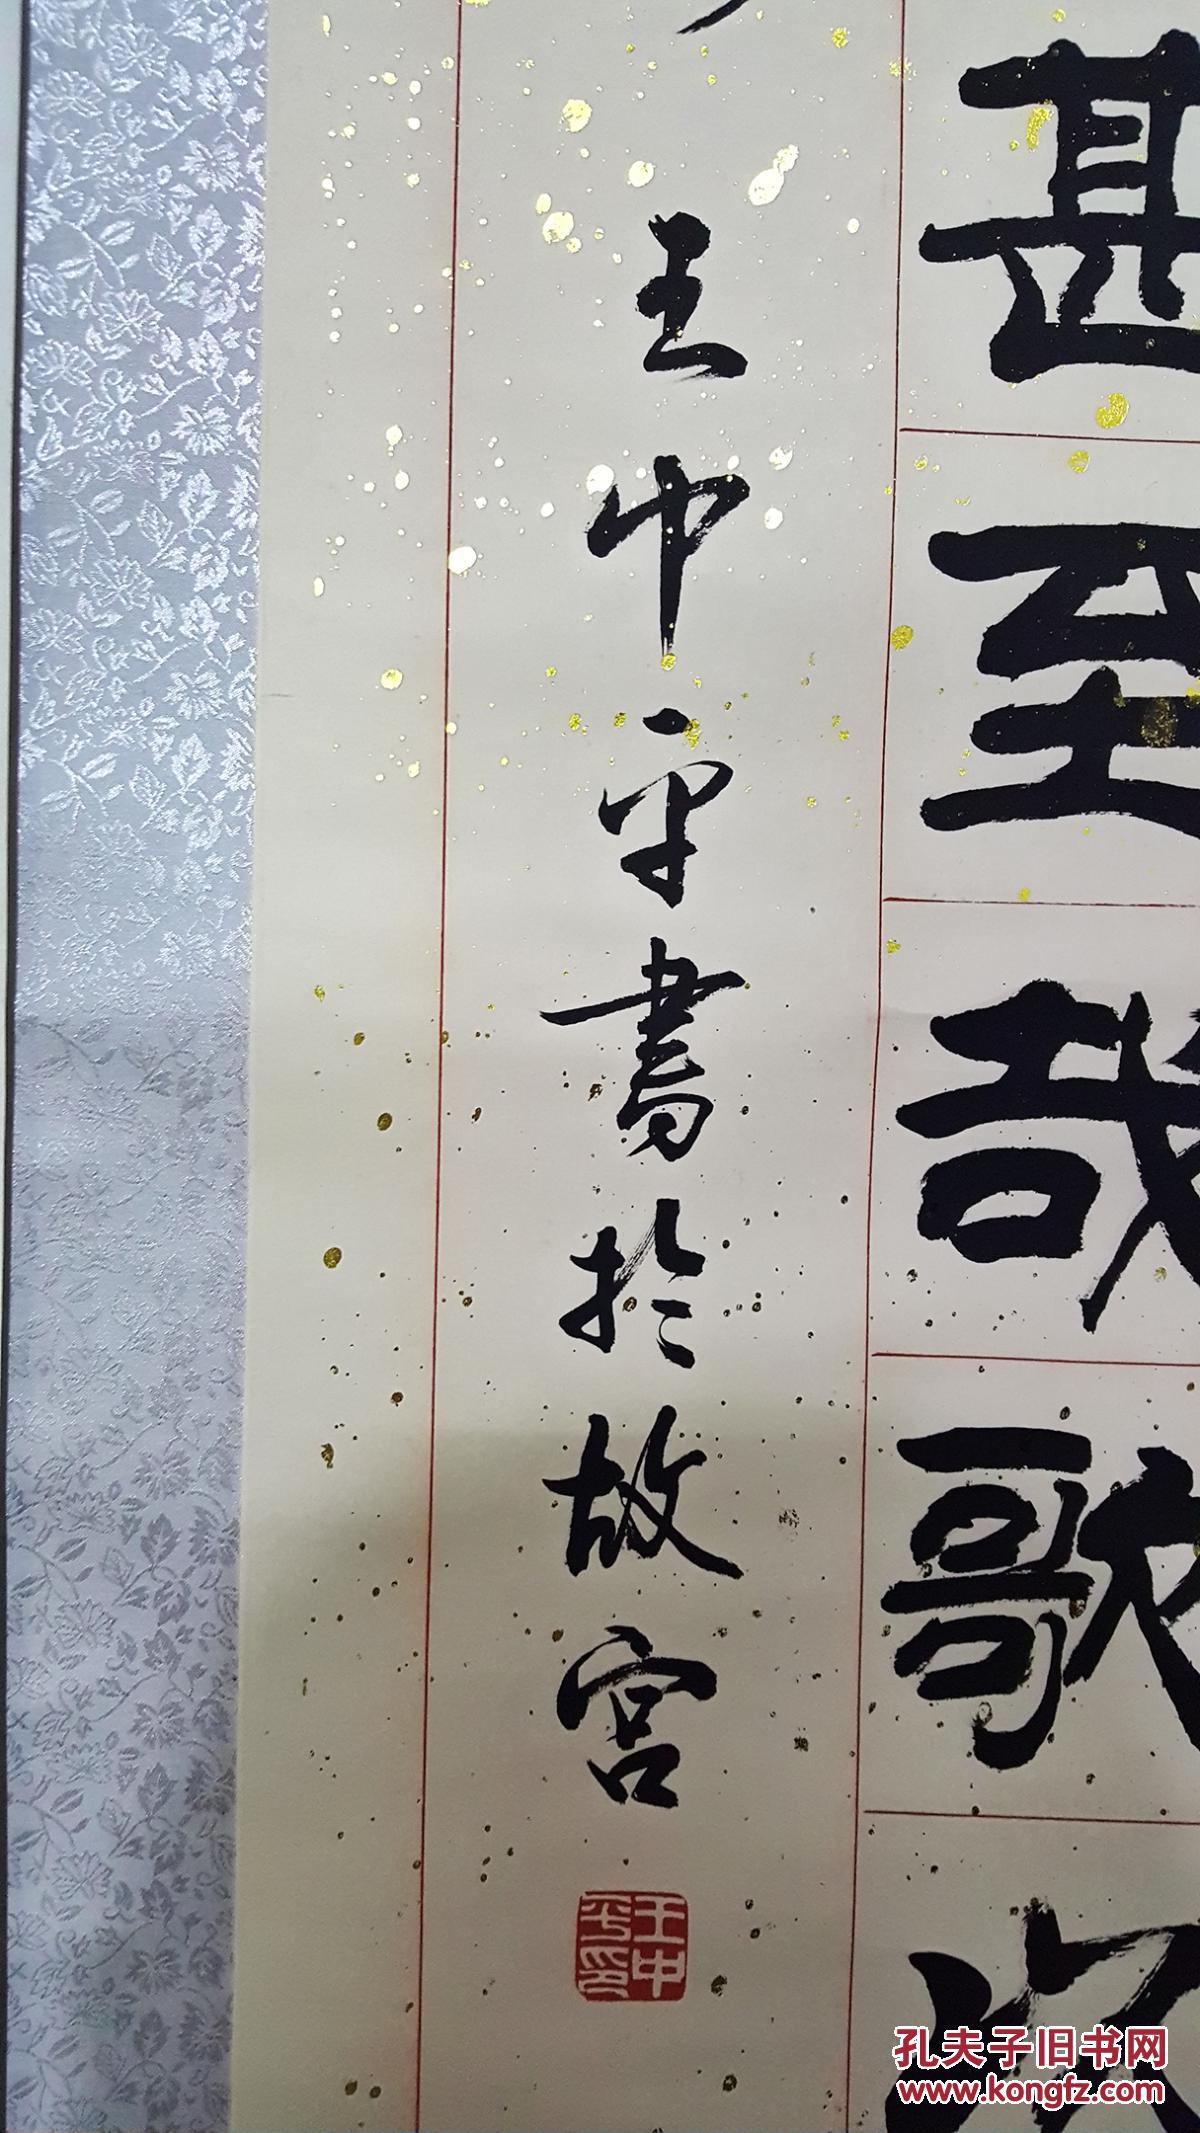 甚至哉歌
王中平書於故宫
王中平印
孔夫子旧书网
www.kongfz.com